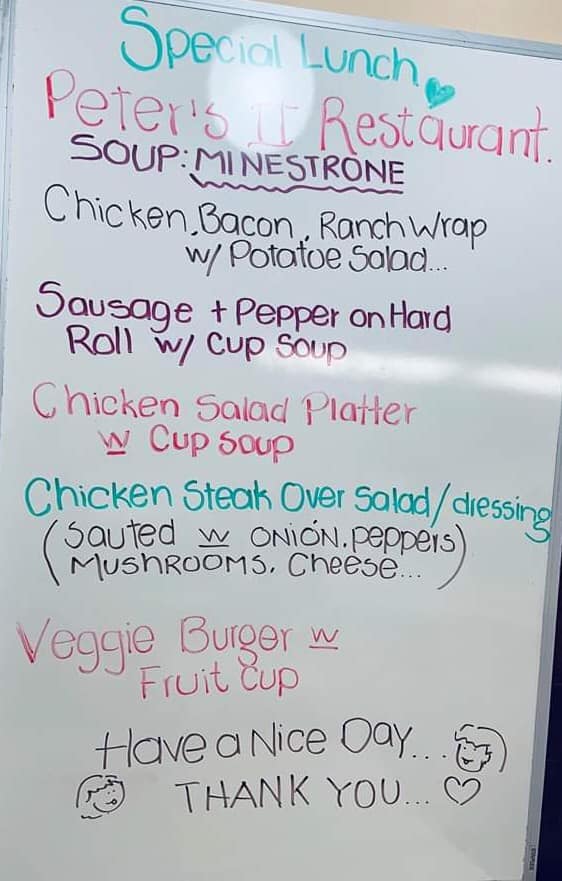 Special Lunch
Peter's II Restaurant.
SOUP: MINESTRONE
Chicken, Bacon, Ranch Wrap
w/ Potatoe Salad...
Sausage + Pepper on Hard
Roll w/ Cup Soup
Chicken Salad Platter
w Cup Soup
Chicken Steak Over Salad/dressing
(Sauted w ONION, peppers)
MUSHROOMS, Cheese...)
Veggie Burger w
Fruit Cup
Have a Nice Day...
THANK YOU...